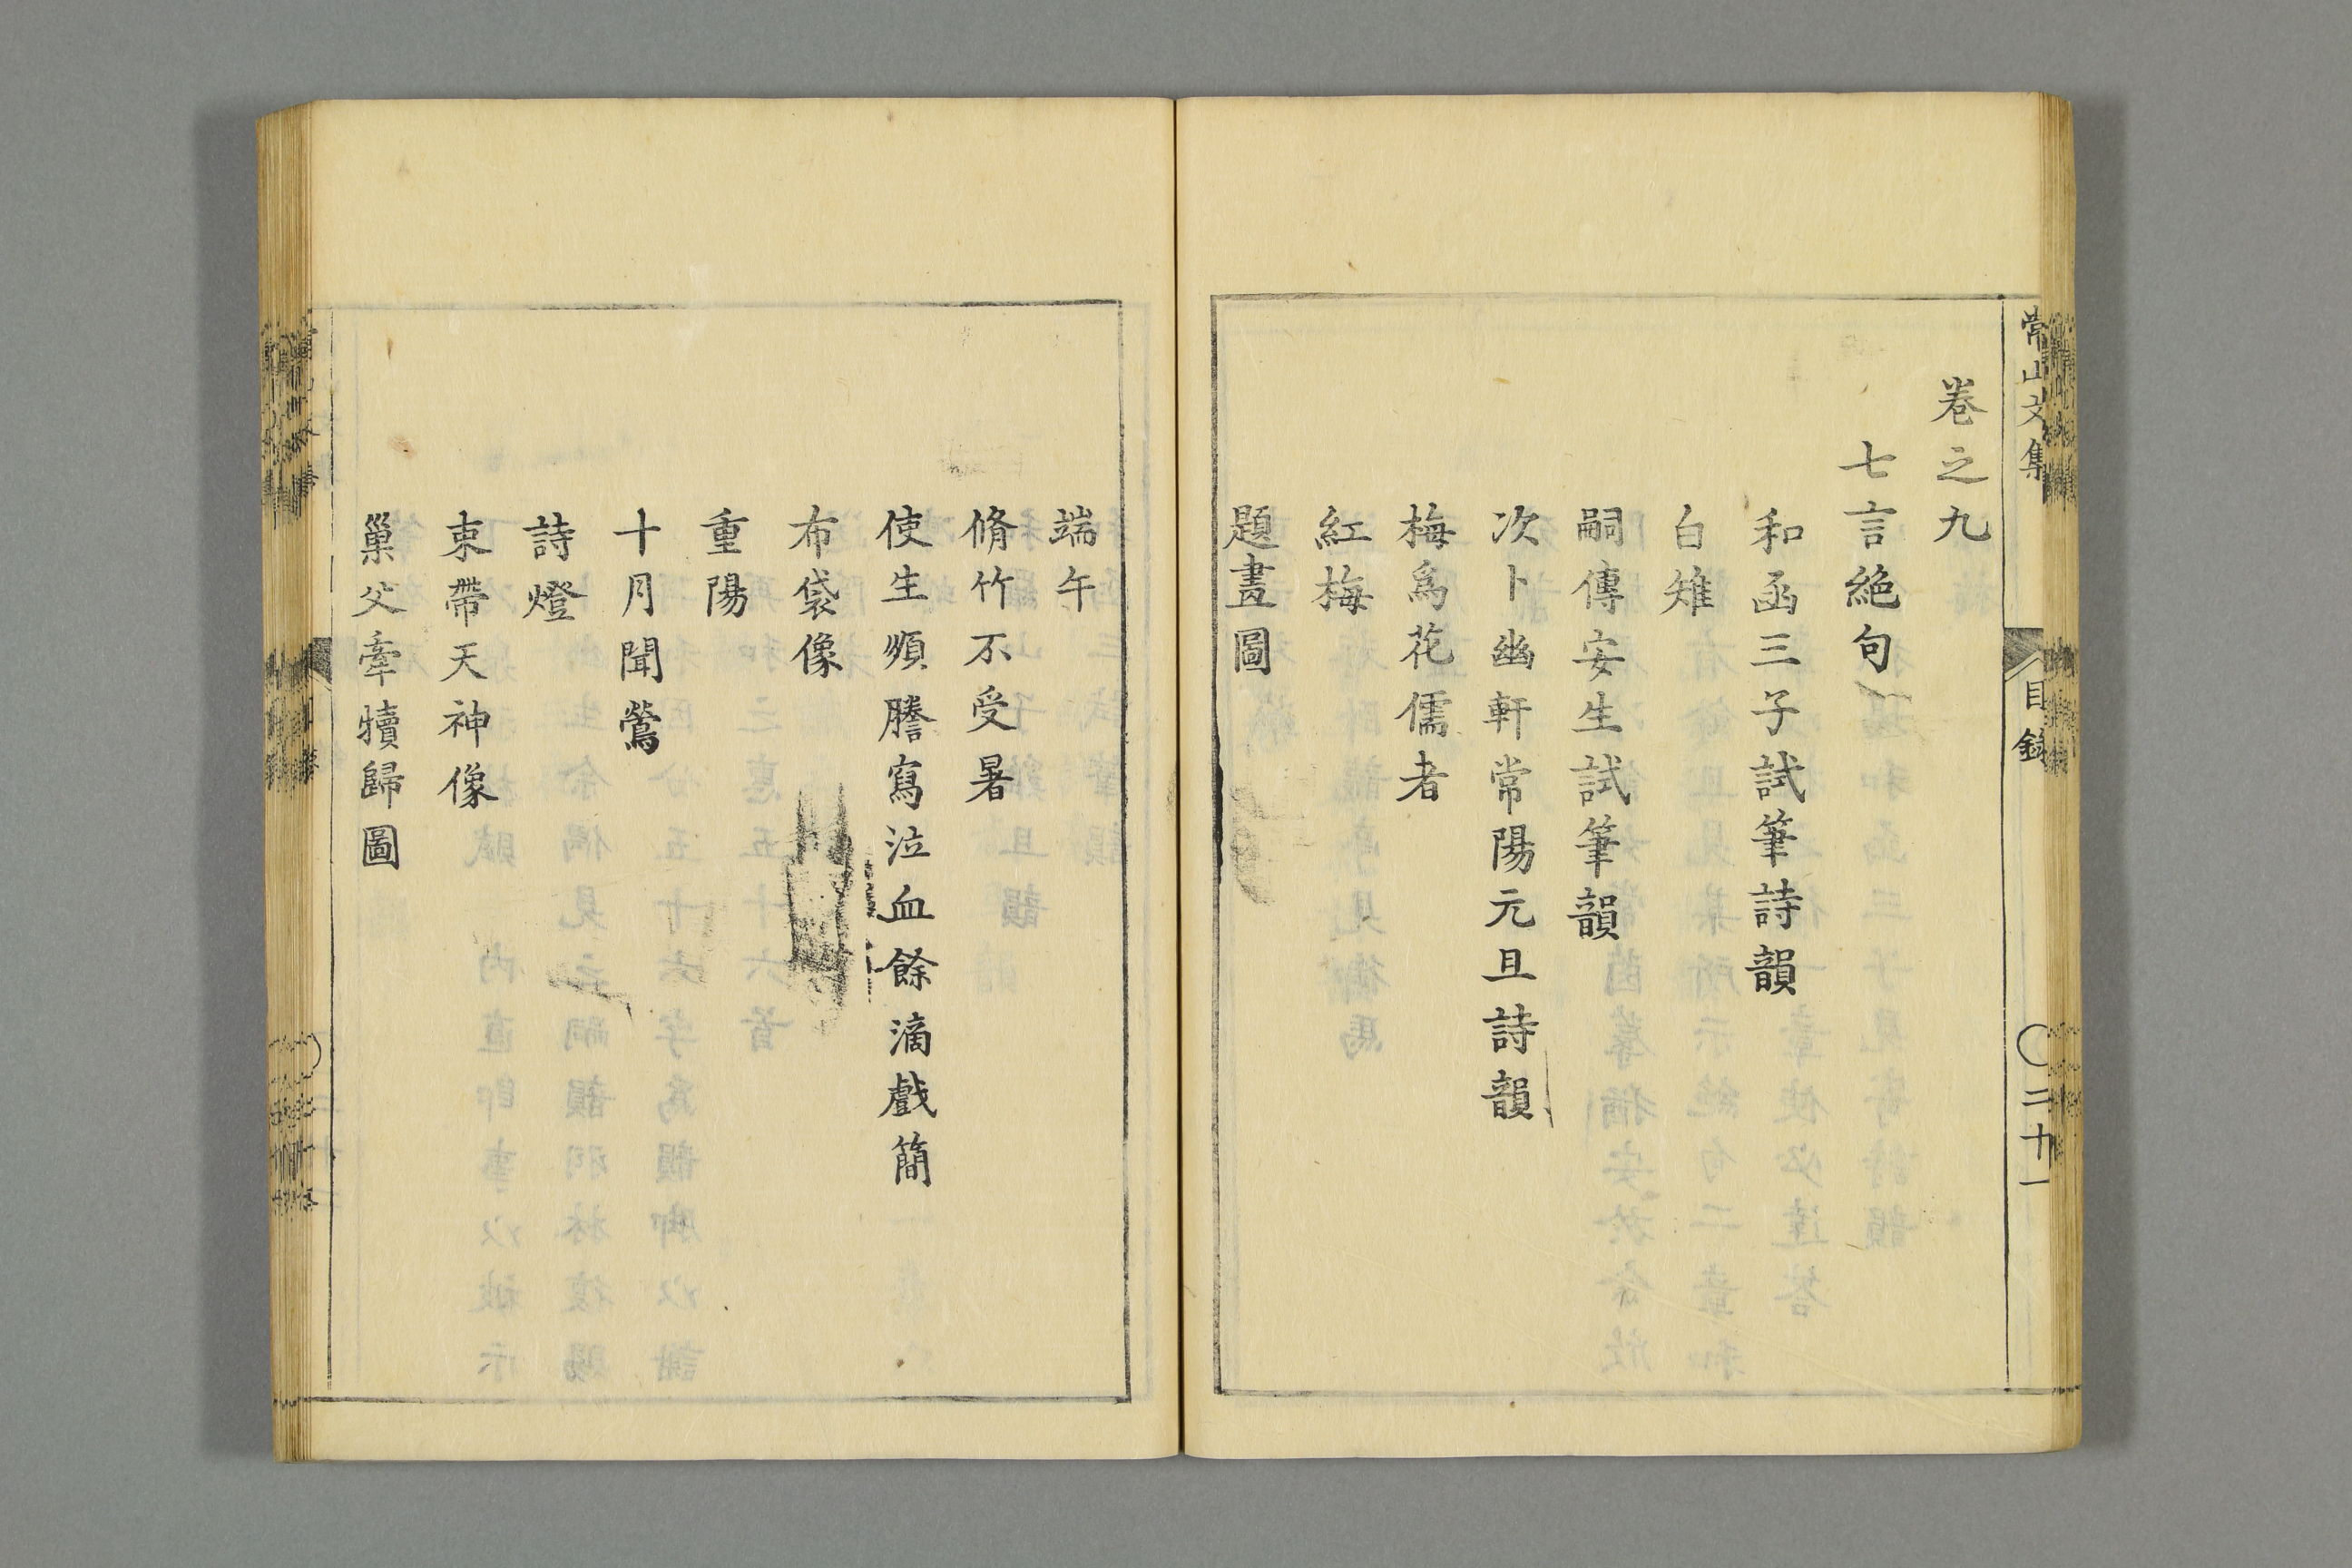 常山文集
目錄
二十一
卷之九
七言絶句
和函三子試筆詩韻
白雉
嗣傳安生試筆韻
次卜幽軒常陽元旦詩韻
梅爲花儒者
紅梅
題畫圖
端午
脩竹不受暑
使生順謄寫泣血餘滴戲簡
布袋像
重陽
十月聞鶯
詩燈
束帶天神像
巢父牽犢歸圖